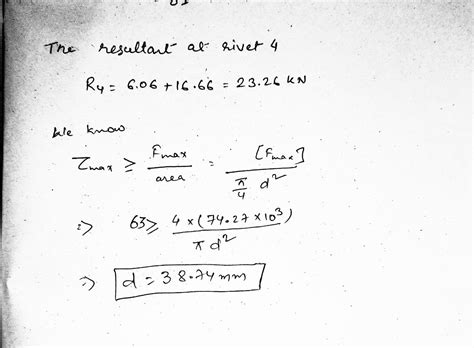 The resultant at rivet 4
R4 = 6.06 + 16.66 = 23.26 KN
We know
τmax ≥ Fmax / area = [Fmax] / (π/4 d²)
⇒ 63 ≥ 4 × (74.27 × 10³) / π d²
⇒ d = 38.74 mm